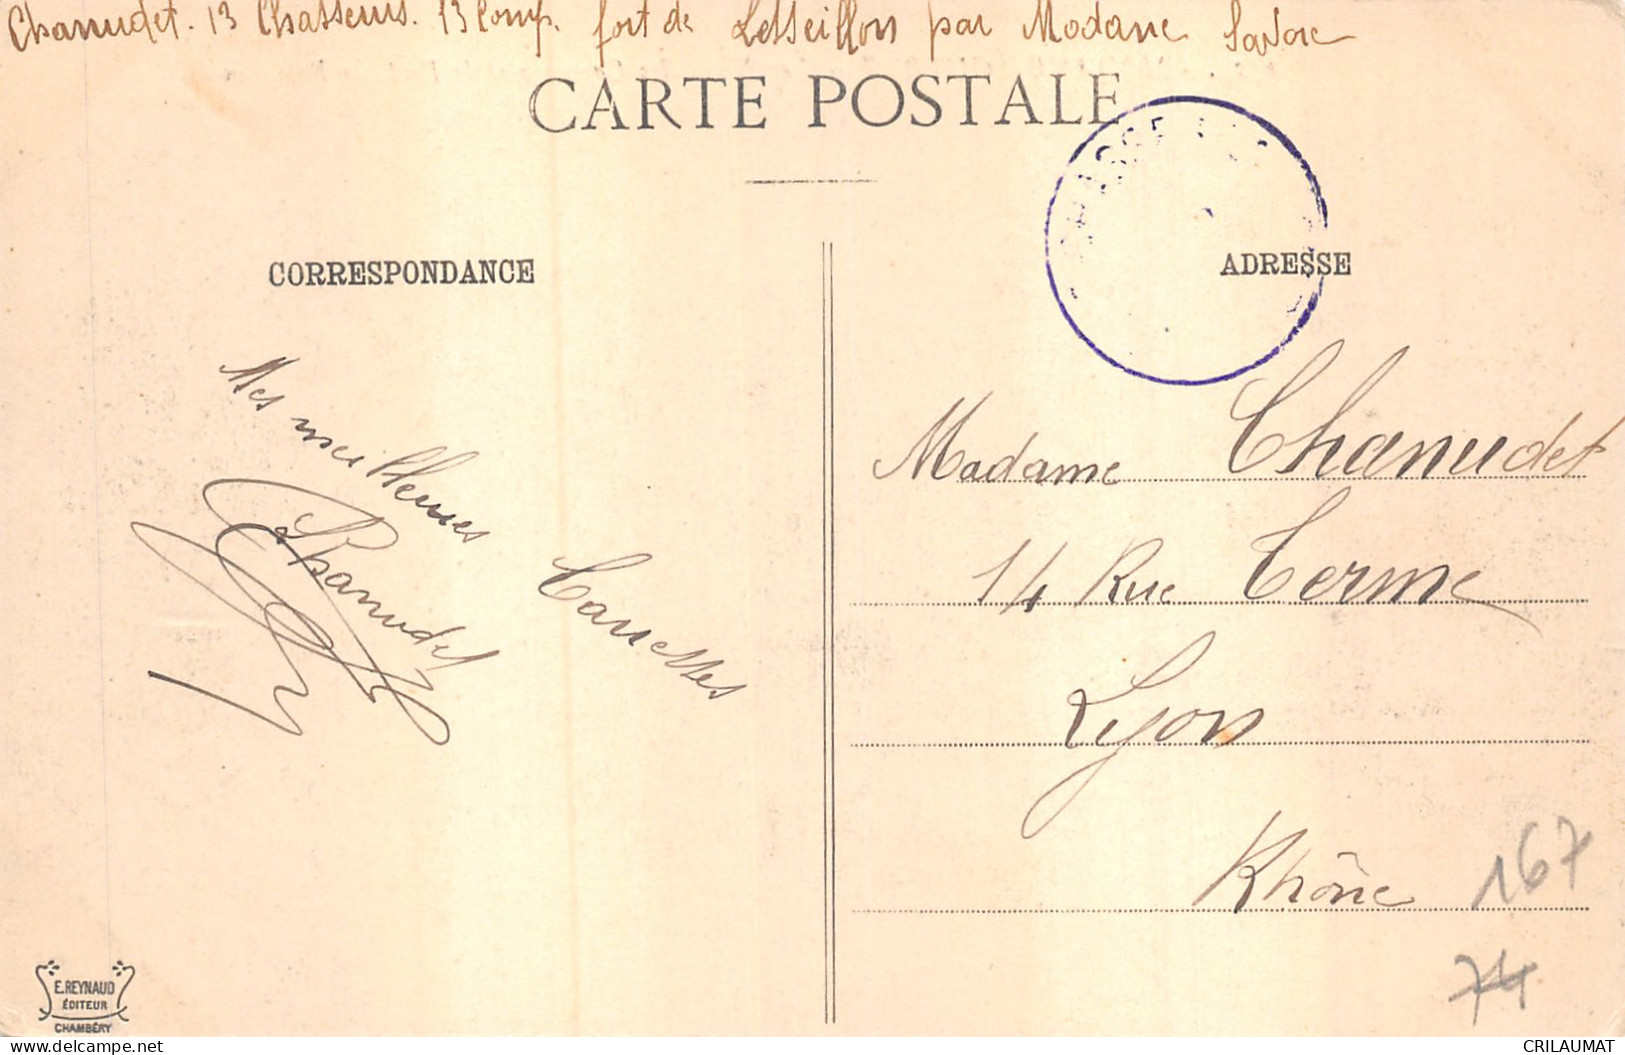 Chanudet. 13 Chasseurs. 13 Comp. fort de Lesseillon par Modane Savoie
CARTE POSTALE
CORRESPONDANCE
ADRESSE
Mes meilleures Caresses
Chanudet
Madame Chanudet
14 Rue Terme
Lyon
Rhône
167
74
E. REYNAUD
ÉDITEUR
CHAMBÉRY
www.delcampe.net
CRILAUMAT